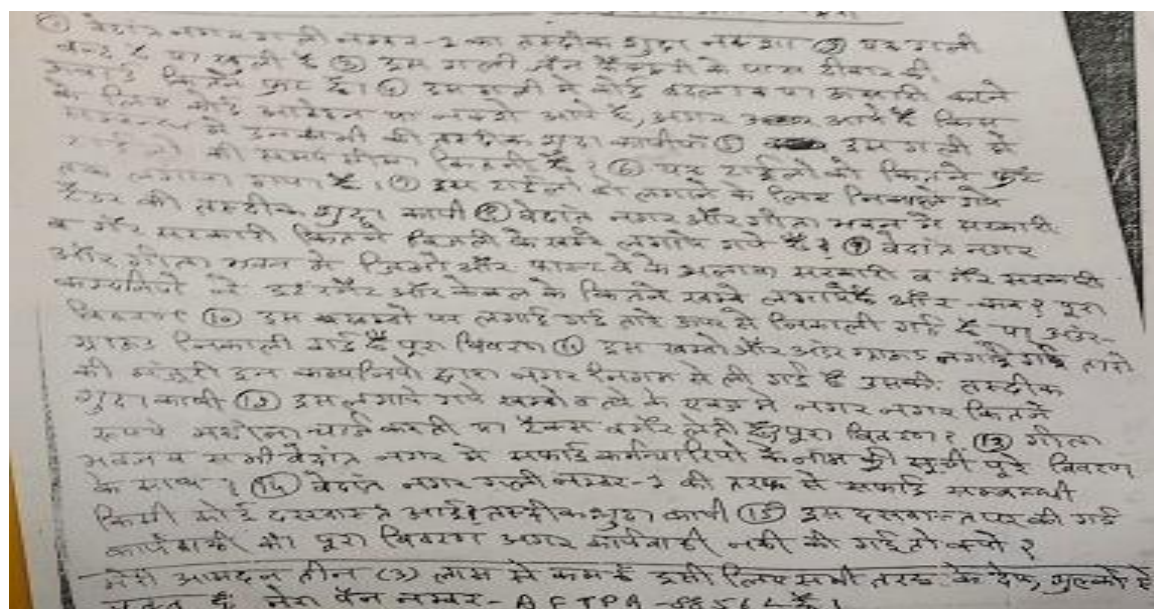 ① वेदांत नगर गली नम्बर-2 का तस्दीक शुदा नक्शा ② यह गली
बन्द है या खुली है ③ इस गली के पास दीवार की
ऊंचाई कितने फुट है। ④ इस गली में कोई बदलाव या करने
के लिए कोई आवेदन या नक्शे आये हैं, अगर आये हैं किस
सम्बन्ध में उन सभी की तस्दीक शुदा कापीयां ⑤ इस गली में
टाईलों की समय सीमा कितनी है? ⑥ यह टाईलों को कितने फुट
तक लगाया गया है। ⑦ इस टाईलों को लगाने के लिए निकाले गये
टैंडर की तस्दीक शुदा कापी ⑧ वेदांत नगर और गीता भवन में सरकारी
व गैर सरकारी कितने बिजली के खम्बे लगाये गये हैं? ⑨ वेदांत नगर
और गीता भवन में जिओ और के अलावा सरकारी व गैर सरकारी
कम्पनियों ने इंटरनैट और केबल के कितने खम्बे लगाये हैं और कब? पूरा
विवरण ⑩ इस खम्बों पर लगाई गई तारे ऊपर से निकाली गई है या अंडर-
ग्राउंड निकाली गई है पूरा विवरण ⑪ इस खम्बों और अंडर ग्राउंड लगाई गई तारों
की मंजूरी इन कम्पनियों द्वारा नगर निगम से ली गई है उसकी तस्दीक
शुदा कापी ⑫ इस लगाये गये खम्बों व के एवज में नगर नगर कितने
रूपये महीना चार्ज करती या टैक्स वगैरे लेती है पूरा विवरण? ⑬ गीता
भवन व सभी वेदांत नगर में सफाई कर्मचारियों के नाम की सूची पूरे विवरण
के साथ? ⑭ वेदांत नगर गली नम्बर-2 की तरफ से सफाई सम्बन्धी
किसी कोई दरखास्त आई? तस्दीक शुदा कापी ⑮ इस दरखास्त पर की गई
कार्यवाही का पूरा विवरण अगर कार्यवाही नहीं की गई तो क्यों?
मेरी आमदन तीन (3) लाख से कम है इसी लिए सभी तरह के शुल्कों से
मेरा पैन नम्बर-